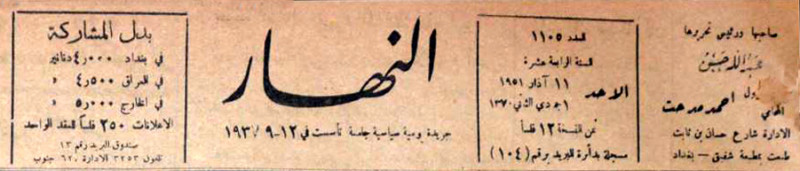 صاحبها ورئيس تحريرها
عبدالله حسين
المحامي
احمد مدحت
الادارة شارع حسان بن ثابت
طبعت بمطبعة شفيق - بغداد
العدد ١١٠٥
السنة الرابعة عشرة
الاحد
١١ آذار ١٩٥١
جمادي الثاني ١٣٧٠
ثمن النسخة ١٢ فلساً
مسجلة بدائرة البريد برقم (١٠٤)
النهار
جريدة يومية سياسية جامعة تأسست في ١٢-٩-
بدل المشاركة
في بغداد ٤٫٠٠٠ دنانير
في العراق ٤٫٥٠٠ »
في الخارج ٥٫٠٠٠ »
الاعلانات ٢٥٠ فلساً للعقد الواحد
صندوق البريد رقم ١٣
تلفون ٣٢٥٣ الادارة ٦٢٠ جنوب